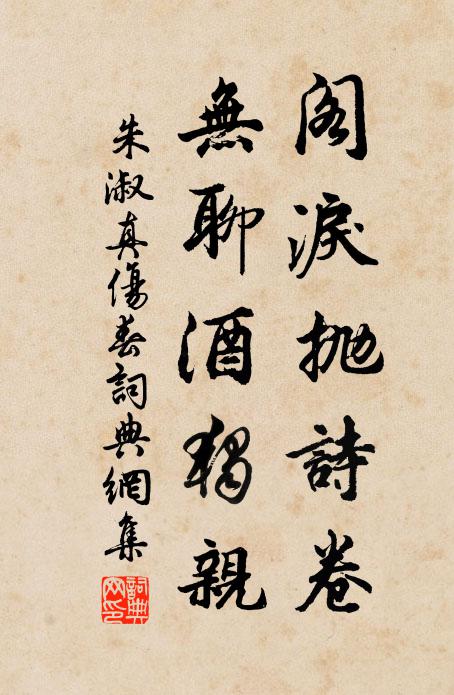 閣淚抛詩卷
無聊酒獨親
朱淑真傷春詞典網集
詞典